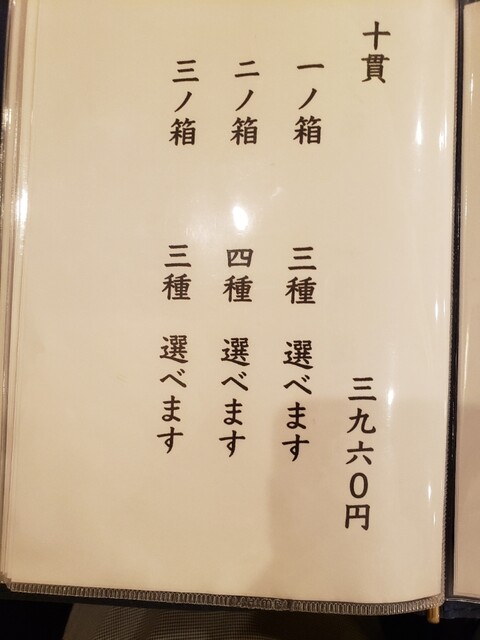 十貫 三九六〇円
一ノ箱 三種 選べます
二ノ箱 四種 選べます
三ノ箱 三種 選べます